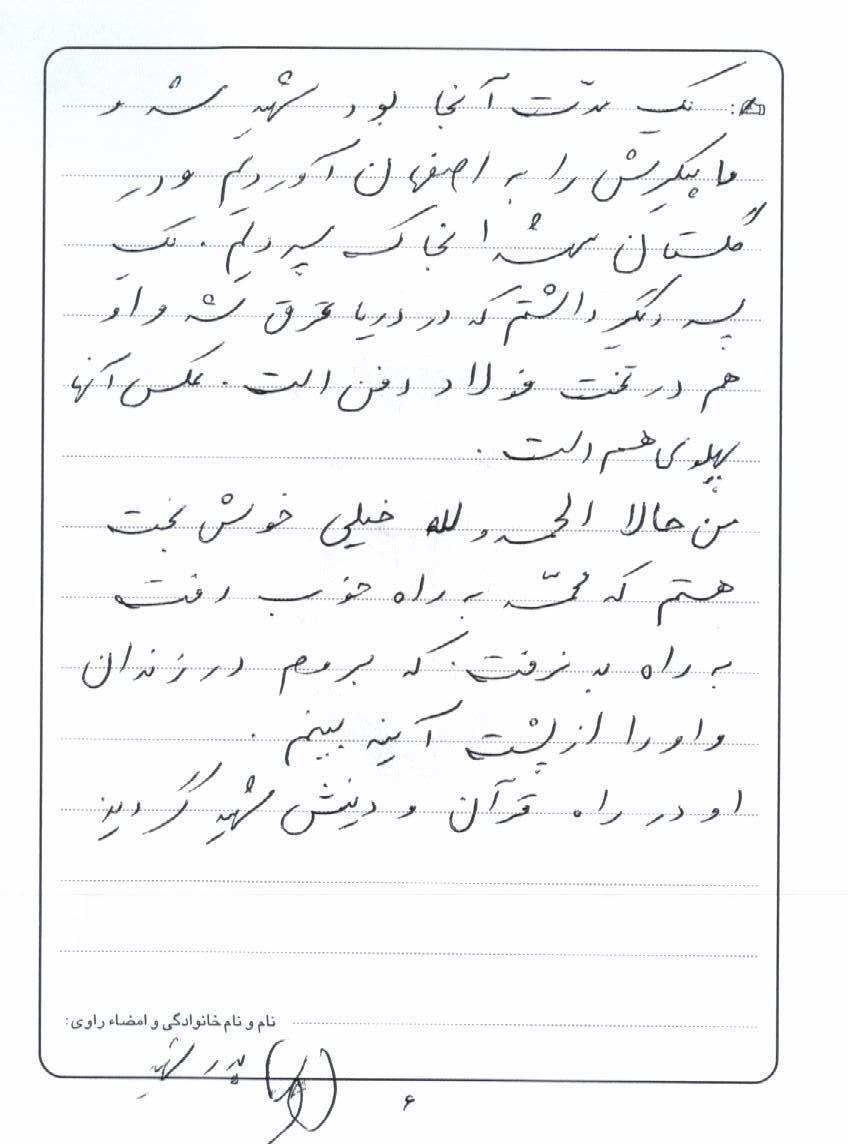 یک مدّت آنجا بود شهید شد و
ما پیکرش را به اصفهان آوردیم و در
گلستان شهدا بخاک سپردیم. یک
پسر دیگر داشتم که در دریا غرق شد و او
هم در تخت فولاد دفن است. عکس آنها
پهلوی هم است.
من حالا الحمدلله خیلی خوش بخت
هستم که محمّد به راه خوب رفت
به راه بد نرفت. که بروم در زندان
و او را از پشت آینه ببینم.
او در راه قرآن و دینش شهید گردید
نام و نام خانوادگی و امضاء راوی:
پدر شهید
۶